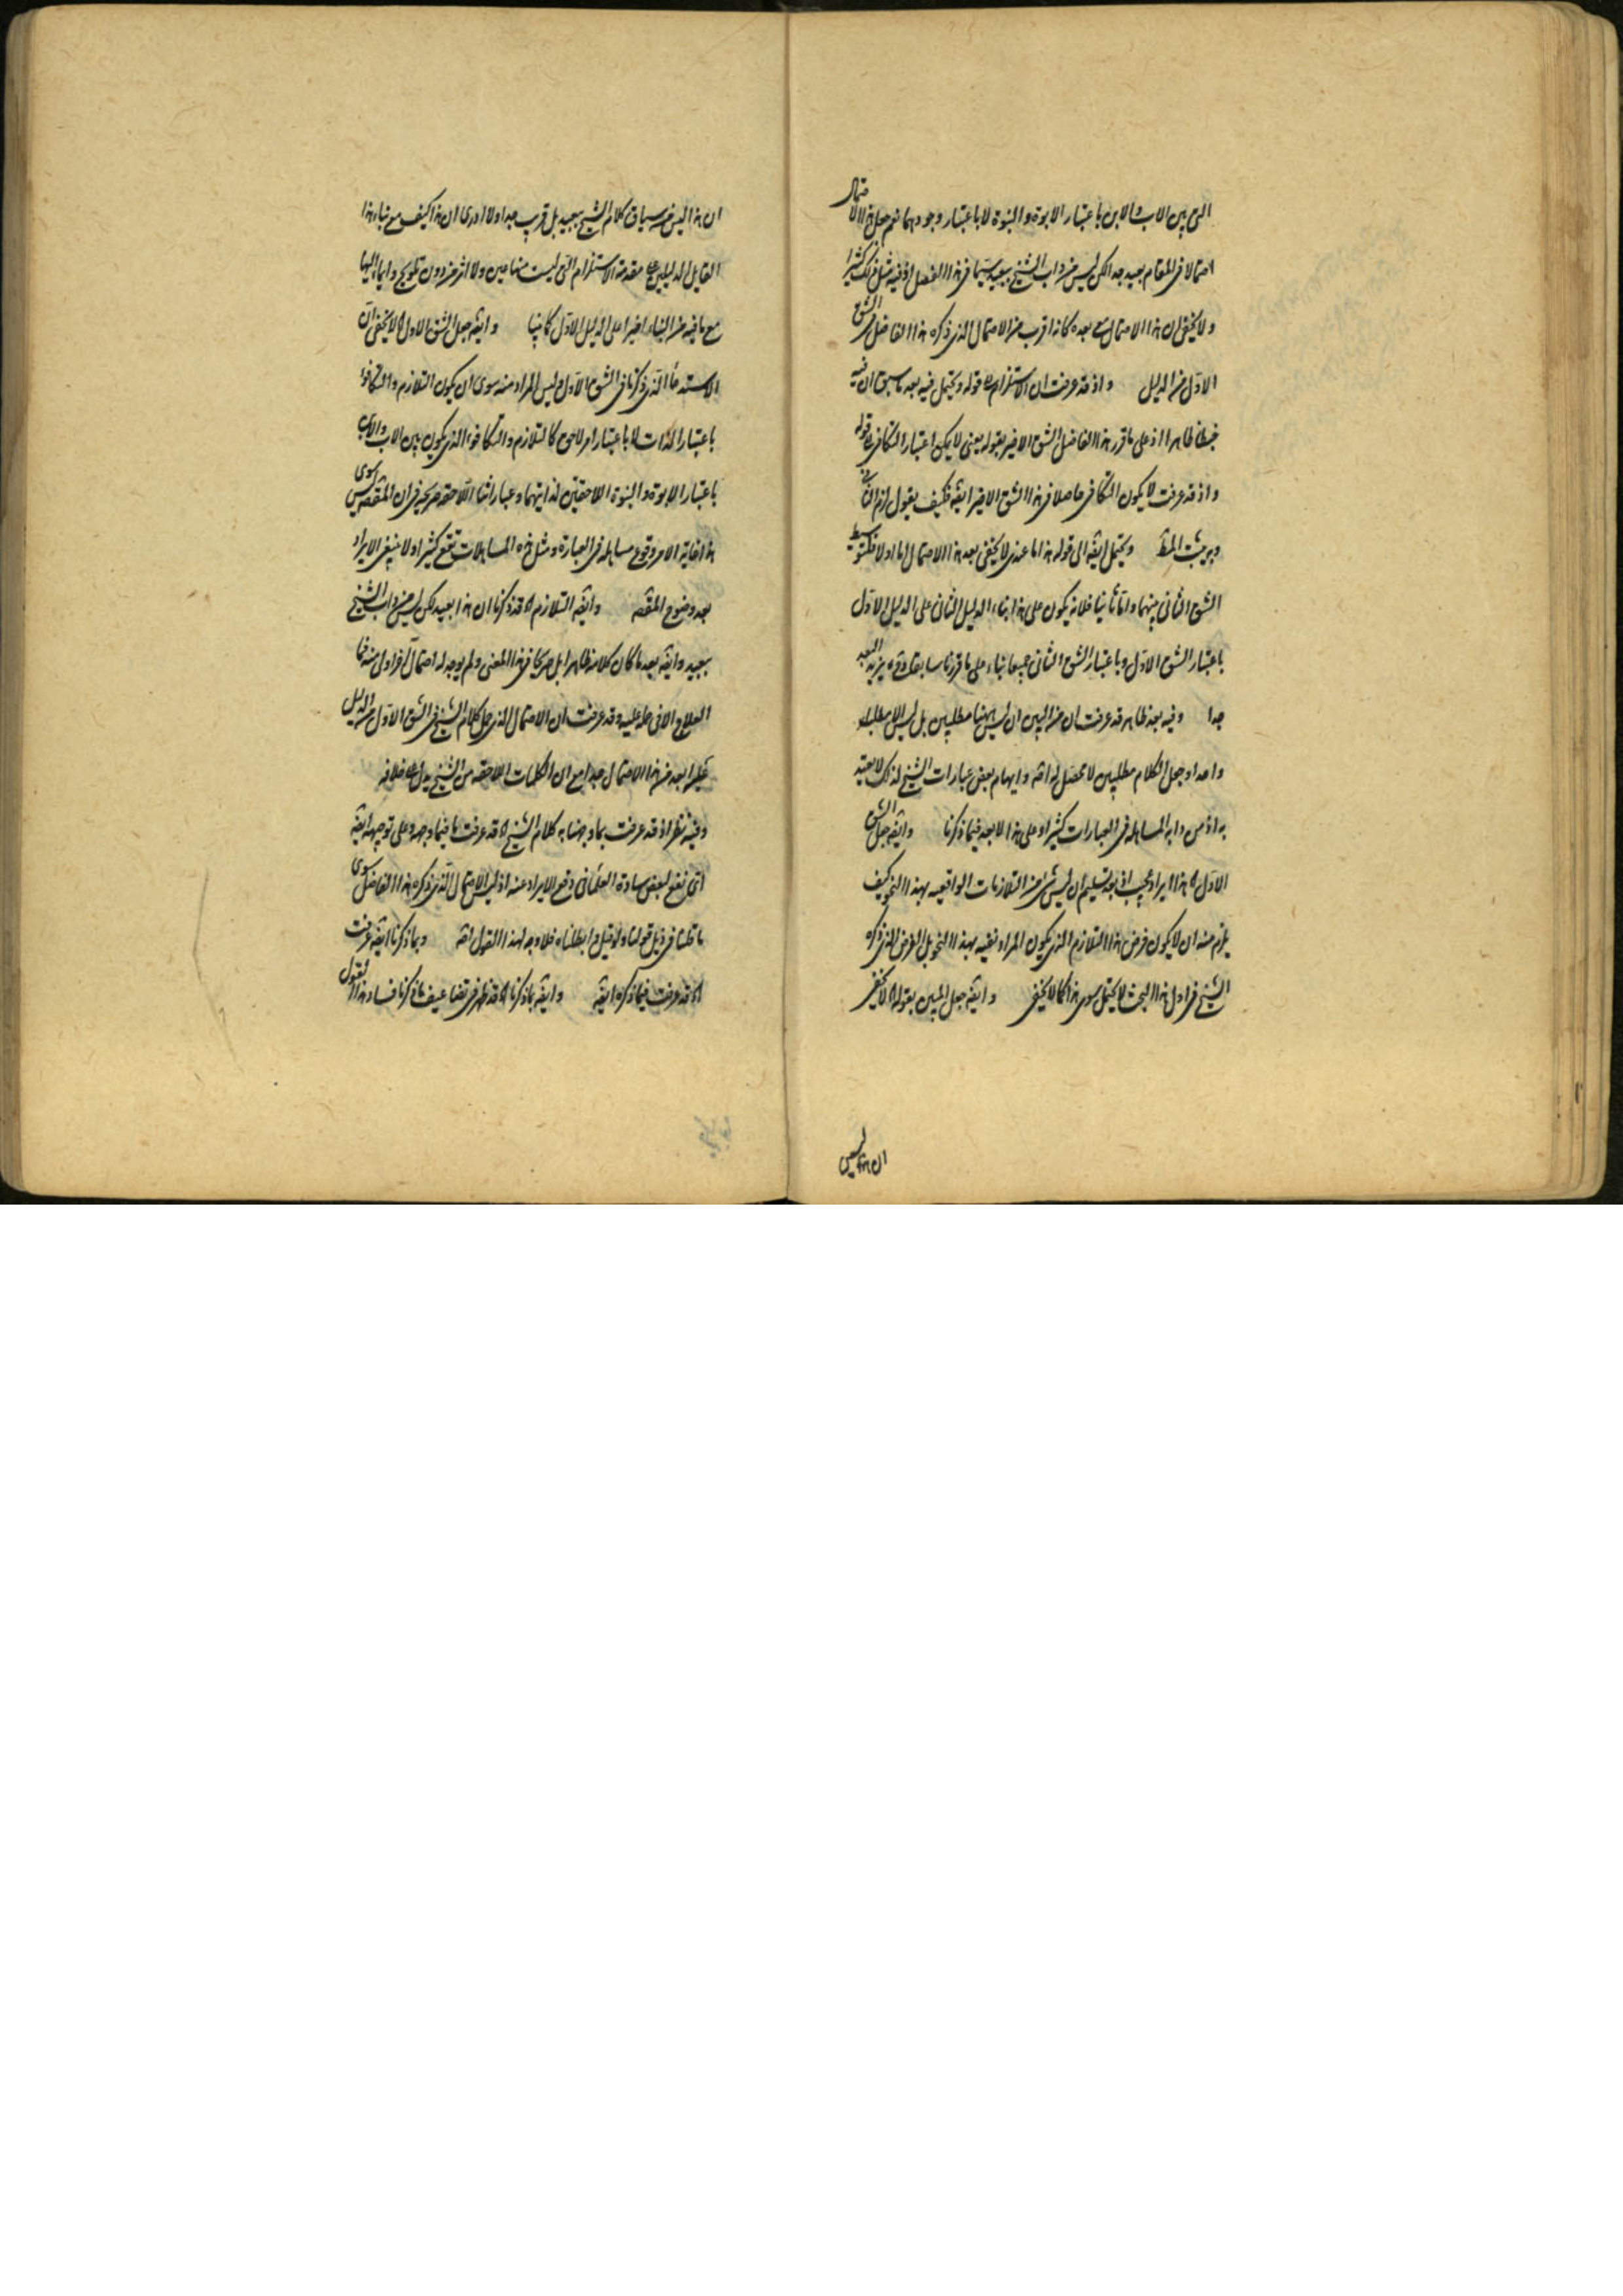 التي بين الاب والابن باعتبار الابوة والبنوة لا باعتبار وجودهما نعم جعل هذا الاحتمال
احتمالا في المقام بعيد جدا لكن ليس من داب الشيخ ببعيد سيما في هذا الفصل اذ فيه مثل ذلك كثيرا
ولا يخفى ان هذا الاحتمال مع بعده كانه اقرب من الاحتمال الذي ذكره هذا الفاضل في الشق
الاول من الدليل واذ قد عرفت ان الاستلزام قوله ويحتمل فيه بعد ما سبق ان فيه
خبطا ظاهرا اذ على ما قرر هذا الفاضل الشق الاخير بقوله يعني لا يمكن اعتبار التكافي قوله
واذ قد عرفت لا يكون التكافي حاصلا في هذا الشق الاخير ايضه فكيف يقول لزم
وبه يثبت المط ويحتمل ايضه الى قوله هذا ما عندي لا يخفى بعد هذا الاحتمال اما اولا فلتوسيط
الشق الثاني بينهما واما ثانيا فلانه يكون على هذا بناء الدليل الثاني على الدليل الاول
باعتبار الشق الاول وباعتبار الشق الثاني جميعا بناء على ما قررنا سابقا البعد
جدا وفيه بعد ظاهر قد عرفت ان من البين ان ليس ههنا مطلبين بل ليس الا مطلبا
واحدا وجعل الكلام مطلبين لا محصل له اصه وايهام بعض عبارات الشيخ لذلك لا يعتد
به اذ من دابه المساهلة في العبارات كثيرا وعلى هذا لا بعد فيما ذكرنا وايضه جعل الشق
الاول هذا ايراد عجيب اذ بعد تسليم ان ليس شيء من التلازمات الواقعية بهذا النحو كيف
يلزم منه ان لا يكون فرض هذا التلازم الذي يكون المراد نفيه بهذا النحو بل الفرض الذي ذكره
الشيخ في اول هذا البحث لا يحتمل سوى هذا كما لا يخفى وايضه جعل المبين بقوله لا يخفى
ان هذا ليس
ان هذا ليس من سياق كلام الشيخ ببعيد بل قريب جدا ولا ادري ان هذا كيف مع بناء هذا
القايل الدليلين على مقدمة الاستلزام التي ليست منها عين ولا اثر من دون تلويح وايماء اليها
مع ما فيه من البناء اخيرا على الدليل الاول كما بينا وايضه جعل الشق الاول لا يخفى ان
الاستدعاء الذي ذكرنا في الشق الاول ليس المراد منه سوى ان يكون التلازم والتكافوء
باعتبار الذات لا باعتبار امر لاحق كالتلازم والتكافوء الذي يكون بين الاب والابن
باعتبار الابوة والبنوة اللاحقتين لذاتيهما وعباراتنا اللاحقة صريحة في ان المقصه ليس سوى
هذا غاية الامر وقوع مساهلة في العبارة ومثل هذه المساهلات تقع كثيرا ولا ينبغي الايراد
بعد وضوح المقصه وايضه التلازم قد ذكرنا ان هذا بعيد لكن ليس من داب الشيخ
ببعيد وايضه بعد ما كان كلامه ظاهرا بل صريحا في هذا المعنى ولم يوجد له احتمال اخر اولى منه فما
العلاج الا في حمله عليه وقد عرفت ان الاحتمال الذي حمل كلام الشيخ في الشق الاول من الدليل
عليه ابعد من هذا الاحتمال جدا مع ان الكلمات اللاحقة من الشيخ يدل على خلافه
وفيه نظر اذ قد عرفت بما وجهنا به كلام الشيخ قد عرفت ما فيما وجهه وعلى توجيهه ايضه
اي نفع لبعض سادة العلماء في دفع الايراد عنه اذ ليس الاحتمال الذي ذكره هذا الفاضل سوى
ما قلنا في ذيل قولنا ولو قيل وابطلناه فلا وجه لهذا القول اصه وبما ذكرنا ايضه عرفت
قد عرفت فيما ذكره ايضه وايضه بما ذكرنا قد ظهر في تضاعيف ما ذكرنا فساد هذا القول